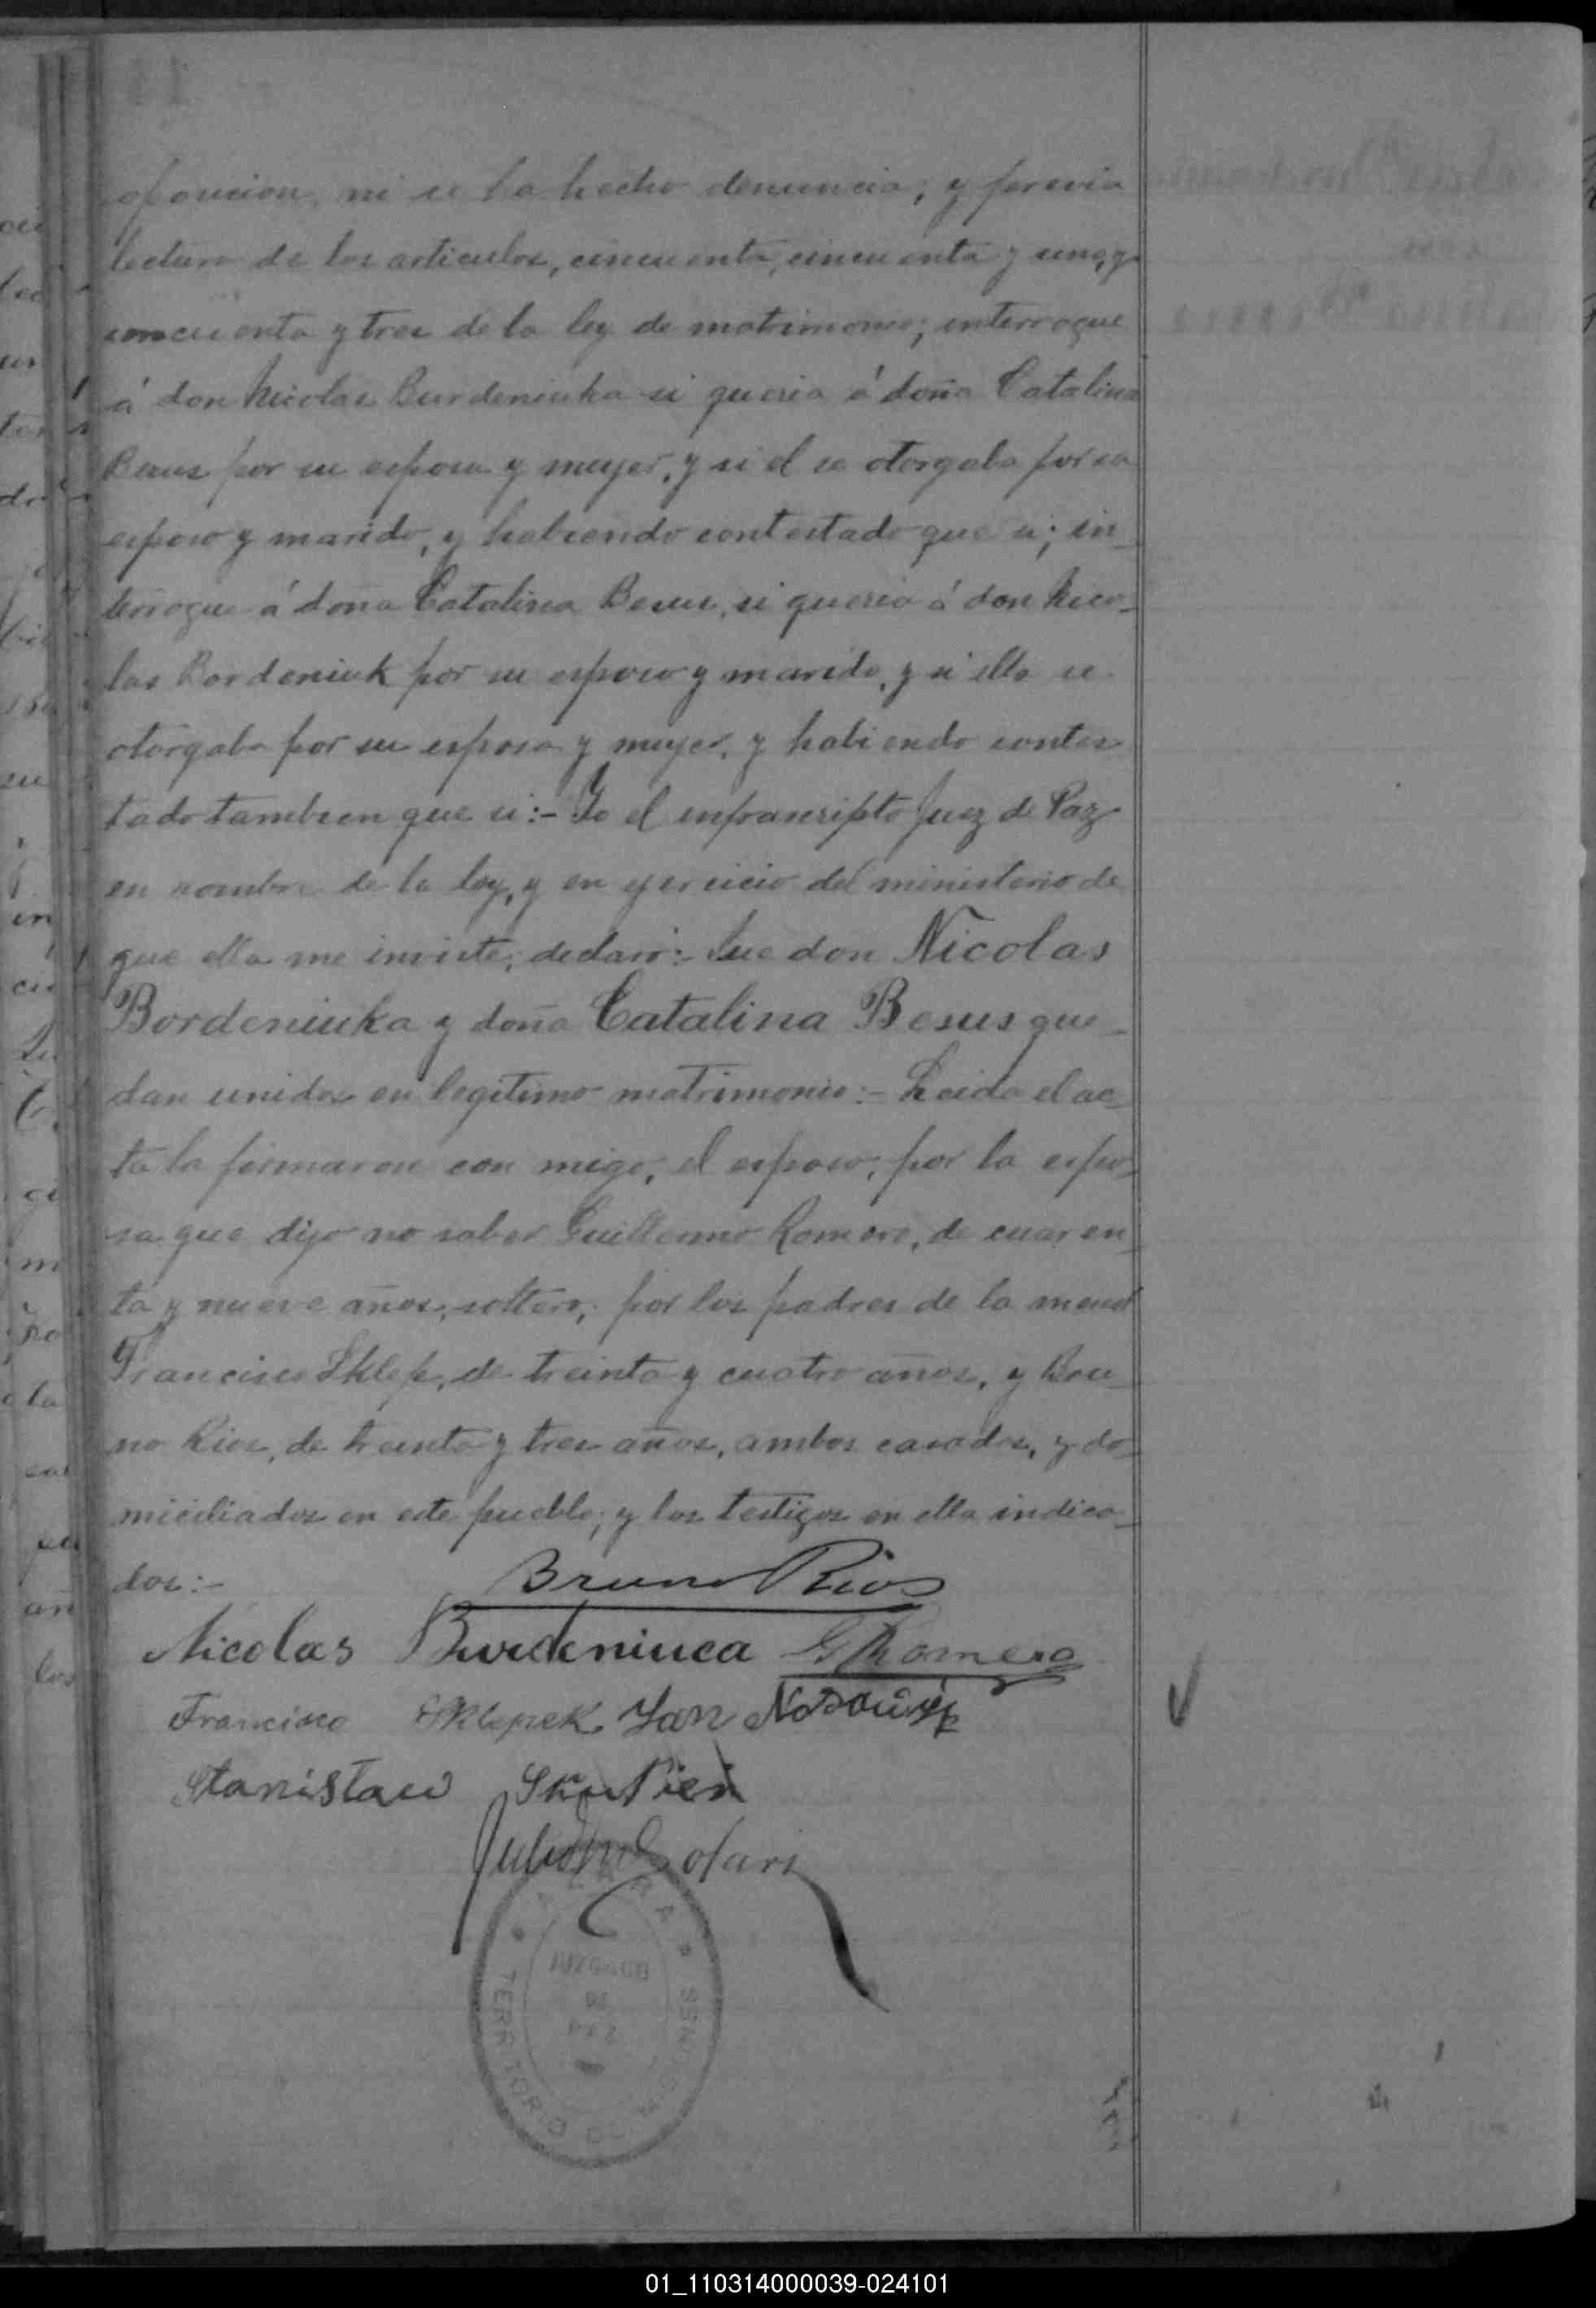 oposicion, ni se ha hecho denuncia; y previa
lectura de los articulos, cincuenta, cincuenta y uno, y
cincuenta y tres de la ley de matrimonio; interrogue
á don Nicolas Burdeniuka si queria á doña Catalina
Besus por su esposa y mujer, y si el se otorgaba por su
esposo y marido, y habiendo contestado que si; in-
terrogue á doña Catalina Besus, si queria á don Nico-
las Bordeniuk por su esposo y marido, y si ella se
otorgaba por su esposa y mujer, y habiendo contes-
tado tambien que si:- Yo el infranscripto Juez de Paz
en nombre de la ley, y en ejercicio del ministerio de
que ella me inviste, declaro:- Que don Nicolas
Bordeniuka y doña Catalina Besus que-
dan unidos en legitimo matrimonio:- Leida el ac-
ta la firmaron con migo, el esposo, por la espo-
sa que dijo no saber Guillermo Romero, de cuaren-
ta y nueve años, soltero, por los padres de la menor
Francisco Sklep, de treinta y cuatro años, y Bru-
no Rios, de treinta y tres años, ambos casados, y do-
miciliados en este pueblo; y los testigos en ella indica-
dos:-
Bruno Rios
Nicolas Burdeniuca G Romero
Francisco Sklepek Jan
Stanisław
Julio Solari
JUZGADO
DE
PAZ
TERRITORIO DE MISIONES
01_110314000039-024101